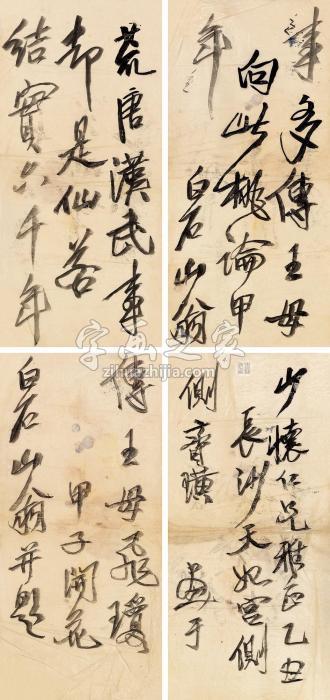 事多傳王母
向此桃論甲
年
白石山翁
荒唐漢武事
却是仙
結實六千年
少懷仁兄雅正乙丑
長沙天妃宮側
側齊璜 畫于
傳王母飛瓊
甲子開花
白石山翁并題
字画之家
zihuazhijia.com